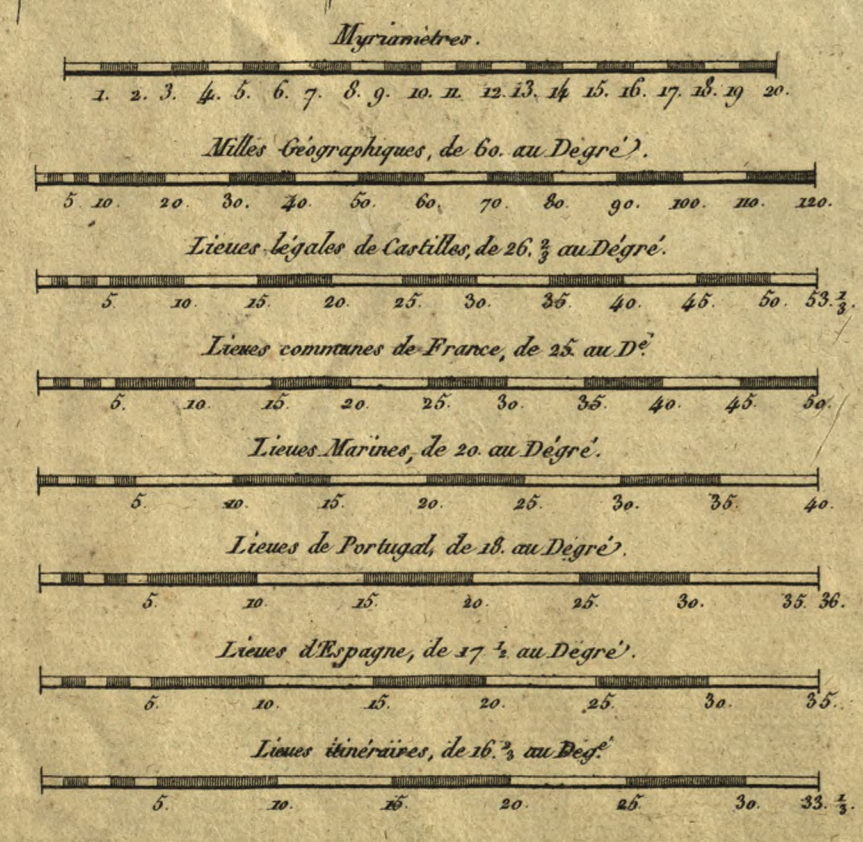 Myriamètres.
1. 2. 3. 4. 5. 6. 7. 8. 9. 10. 11. 12. 13. 14 15. 16. 17. 18. 19 20.
Milles Géographiques, de 60. au Dégré.
5 10. 20. 30. 40. 50. 60. 70. 80. 90. 100. 110. 120.
Lieues légales de Castilles, de 26. 2/3 au Dégré.
5. 10. 15. 20. 25. 30. 35. 40. 45. 50. 53. 1/3.
Lieues communes de France, de 25. au Dé.
5. 10. 15. 20. 25. 30. 35. 40. 45. 50.
Lieues Marines, de 20. au Dégré.
5. 10. 15. 20. 25. 30. 35. 40.
Lieues de Portugal, de 18. au Dégré.
5. 10. 15. 20. 25. 30. 35. 36.
Lieues d'Espagne, de 17 1/2 au Dégré.
5. 10. 15. 20. 25. 30. 35.
Lieues itinéraires, de 16. 2/3 au Degé.
5. 10. 15 20. 25. 30. 33. 1/3.